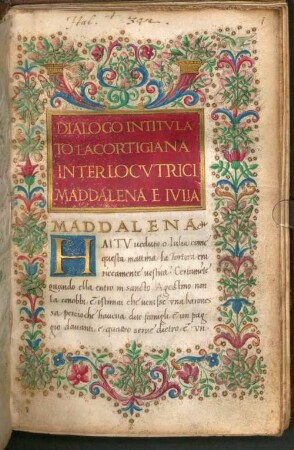 Ital. 342
1
DIALOGO INTITVLA
TO LA CORTIGIANA
INTERLOCVTRICI
MADDALENA E IVLIA
MADDALENA
HAI TV ueduto o Iulia come
questa mattina la Tortora era
riccamente uestita? Certamete
quando ella entro in sancto Agostino non
la conobbi. E stimai che uenisse una barones
sa percioche haueua due famigli E un pag
gio dauanti. e quattro serue dietro. E un